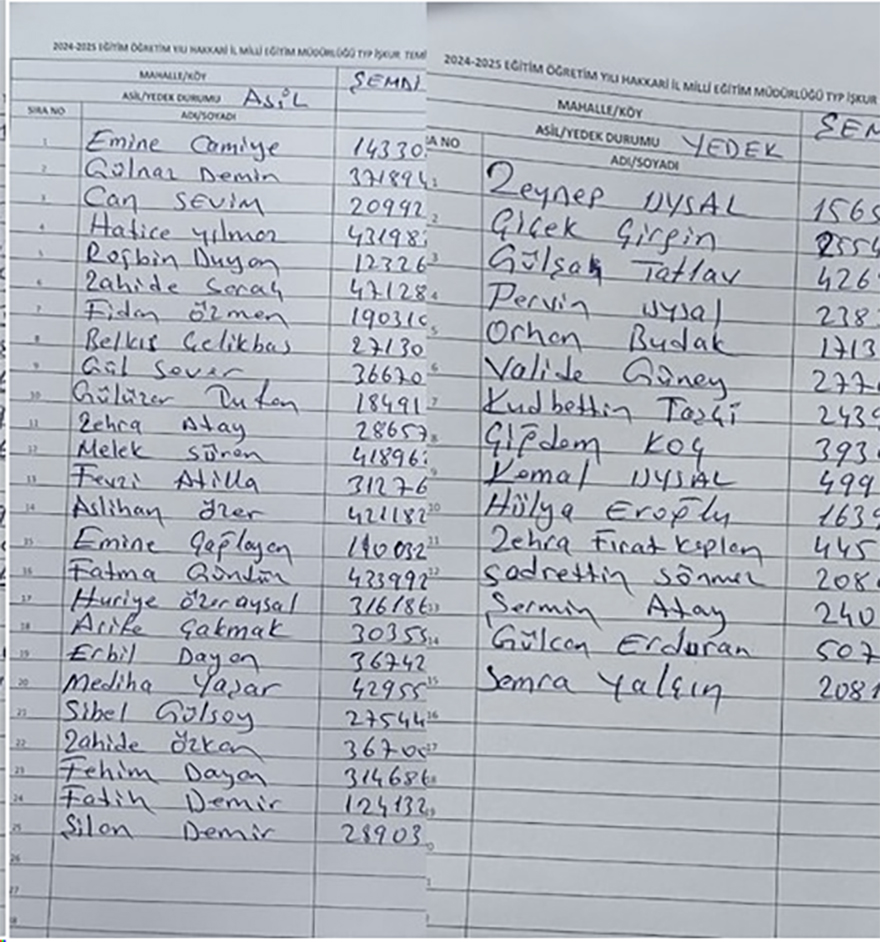 2024-2025 EĞİTİM ÖĞRETİM YILI HAKKARİ İL MİLLİ EĞİTİM MÜDÜRLÜĞÜ TYP İŞKUR TEMİ
MAHALLE/KÖY ŞEMDİ
ASİL/YEDEK DURUMU ASİL
SIRA NO ADI/SOYADI
1 Emine Camiye 14330
2 Gülnaz Demin 371894
3 Can SEVİM 20992
4 Hatice Yılmaz 43198
5 Roşbin Duyan 12326
6 Zahide Saraç 47128
7 Fidan Özmen 19031
8 Belkıs Çelikbaş 27130
9 Gül Sever 36670
10 Gülüzar 18491
11 Zehra Atay 28657
12 Melek Süren 41896
13 Fevzi Atilla 31276
14 Aslıhan Özer 421182
15 Emine Çağlayan 190032
16 Fatma Gündür 433992
17 Huriye Özeraysal 316186
18 Arife Çakmak 30355
19 Erbil Dayan 36742
20 Mediha Yaşar 42955
21 Sibel Gülsoy 27544
22 Zahide Özkan 36700
23 Fehim Dayan 314686
24 Fatih Demir 124132
25 Silan Demir 28903
26
27
2024-2025 EĞİTİM ÖĞRETİM YILI HAKKARİ İL MİLLİ EĞİTİM MÜDÜRLÜĞÜ TYP İŞKUR
MAHALLE/KÖY ŞEM
ASİL/YEDEK DURUMU YEDEK
RA NO ADI/SOYADI
1 Zeynep UYSAL 1565
2 Çiçek Girgin 2554
3 Gülşah Tatlav 426
4 Pervin Uysal 238
5 Orhan Budak 1713
6 Valide Güney 277
7 Kudbettin Tazgi 2439
8 Çiğdem KOÇ 393
9 Kemal UYSAL 499
10 Hülya Eroğlu 1639
11 Zehra Fırat Kaplan 445
12 Sadrettin Sönmez 208
13 Sermin Atay 240
14 Gülcan Erduran 507
15 Semra Yalçın 2081
16
17